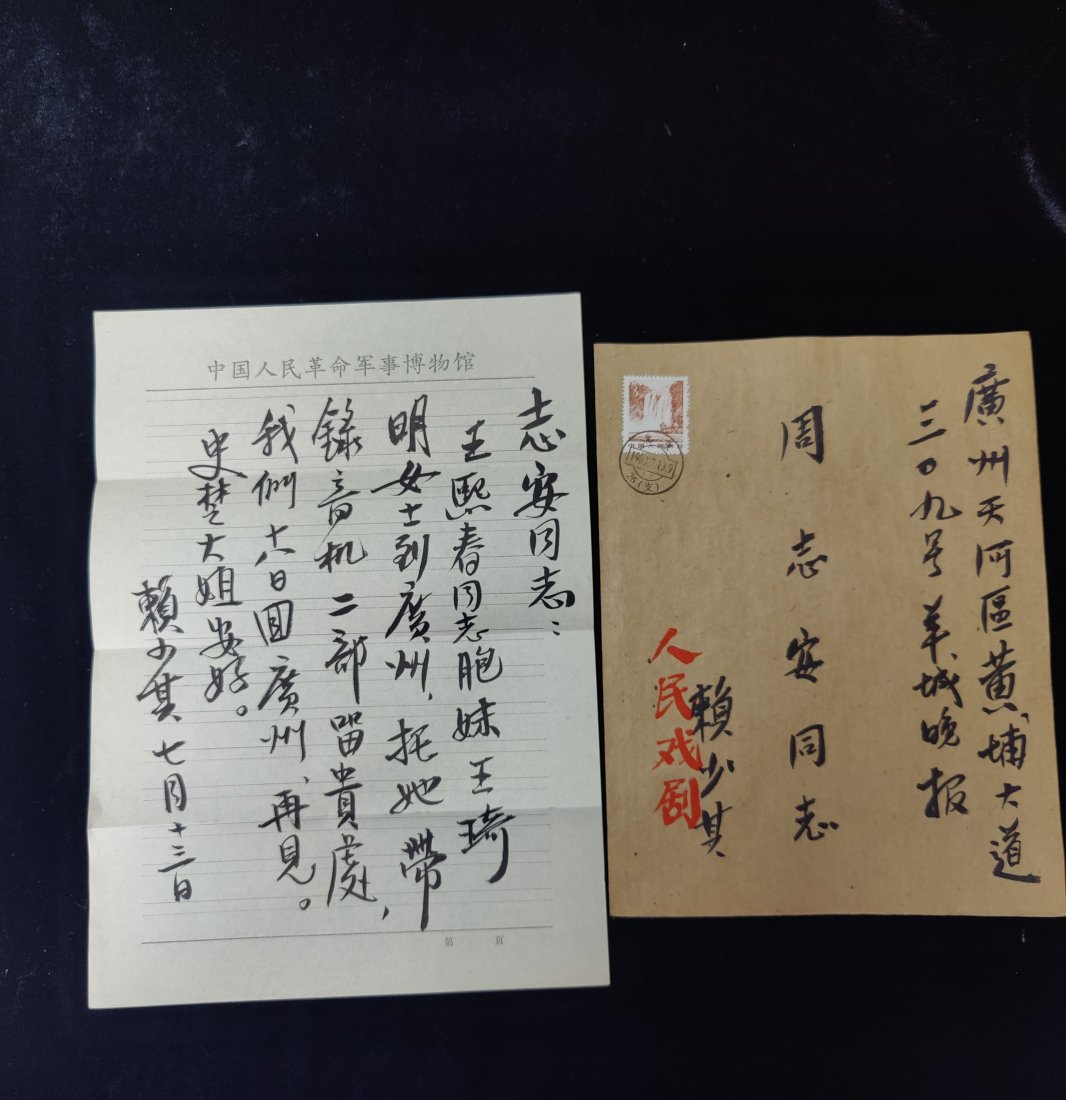 中国人民革命军事博物馆
志安同志：
王熙春同志胞妹王琦
明女士到廣州，托她带
錄音机二部留貴處，
我们十八日回廣州，再見。
史楚大姐安好。
賴少其 七月十三日
第 页
廣州天河區黄埔大道
三〇九号羊城晚报
周志安同志
人民戏剧
賴少其
中国人民邮政